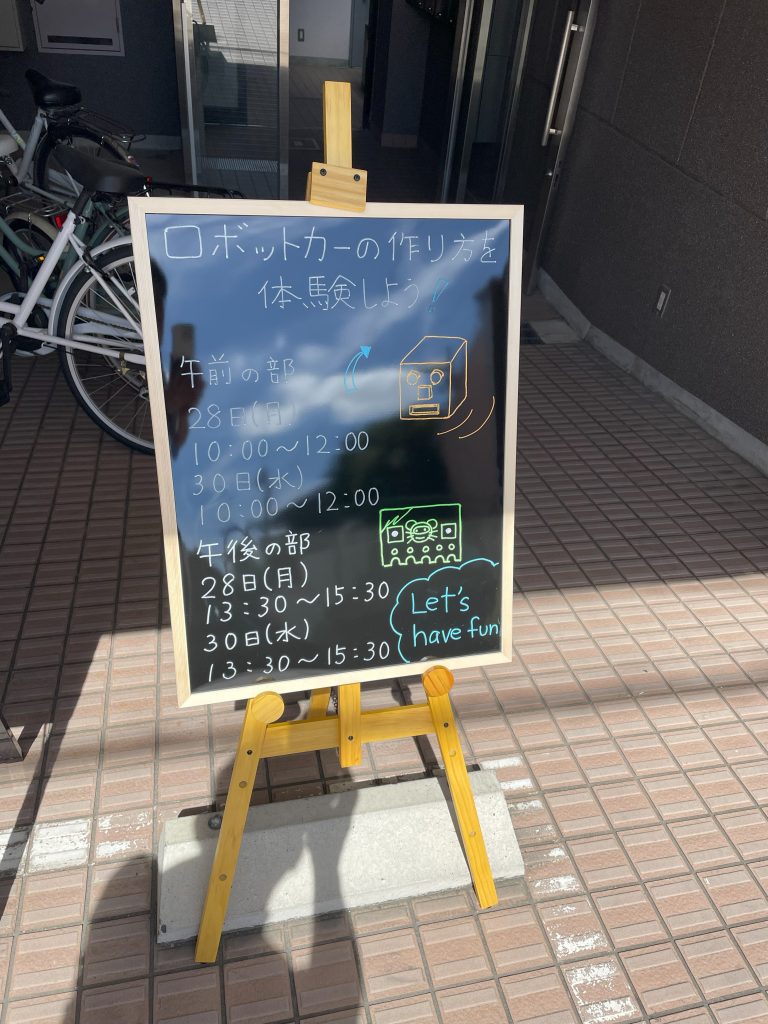 ロボットカーの作り方を
体験しよう!
午前の部
28日(月)
10:00～12:00
30日(水)
10:00～12:00
午後の部
28日(月)
13:30～15:30
30日(水)
13:30～15:30
Let's
have fun